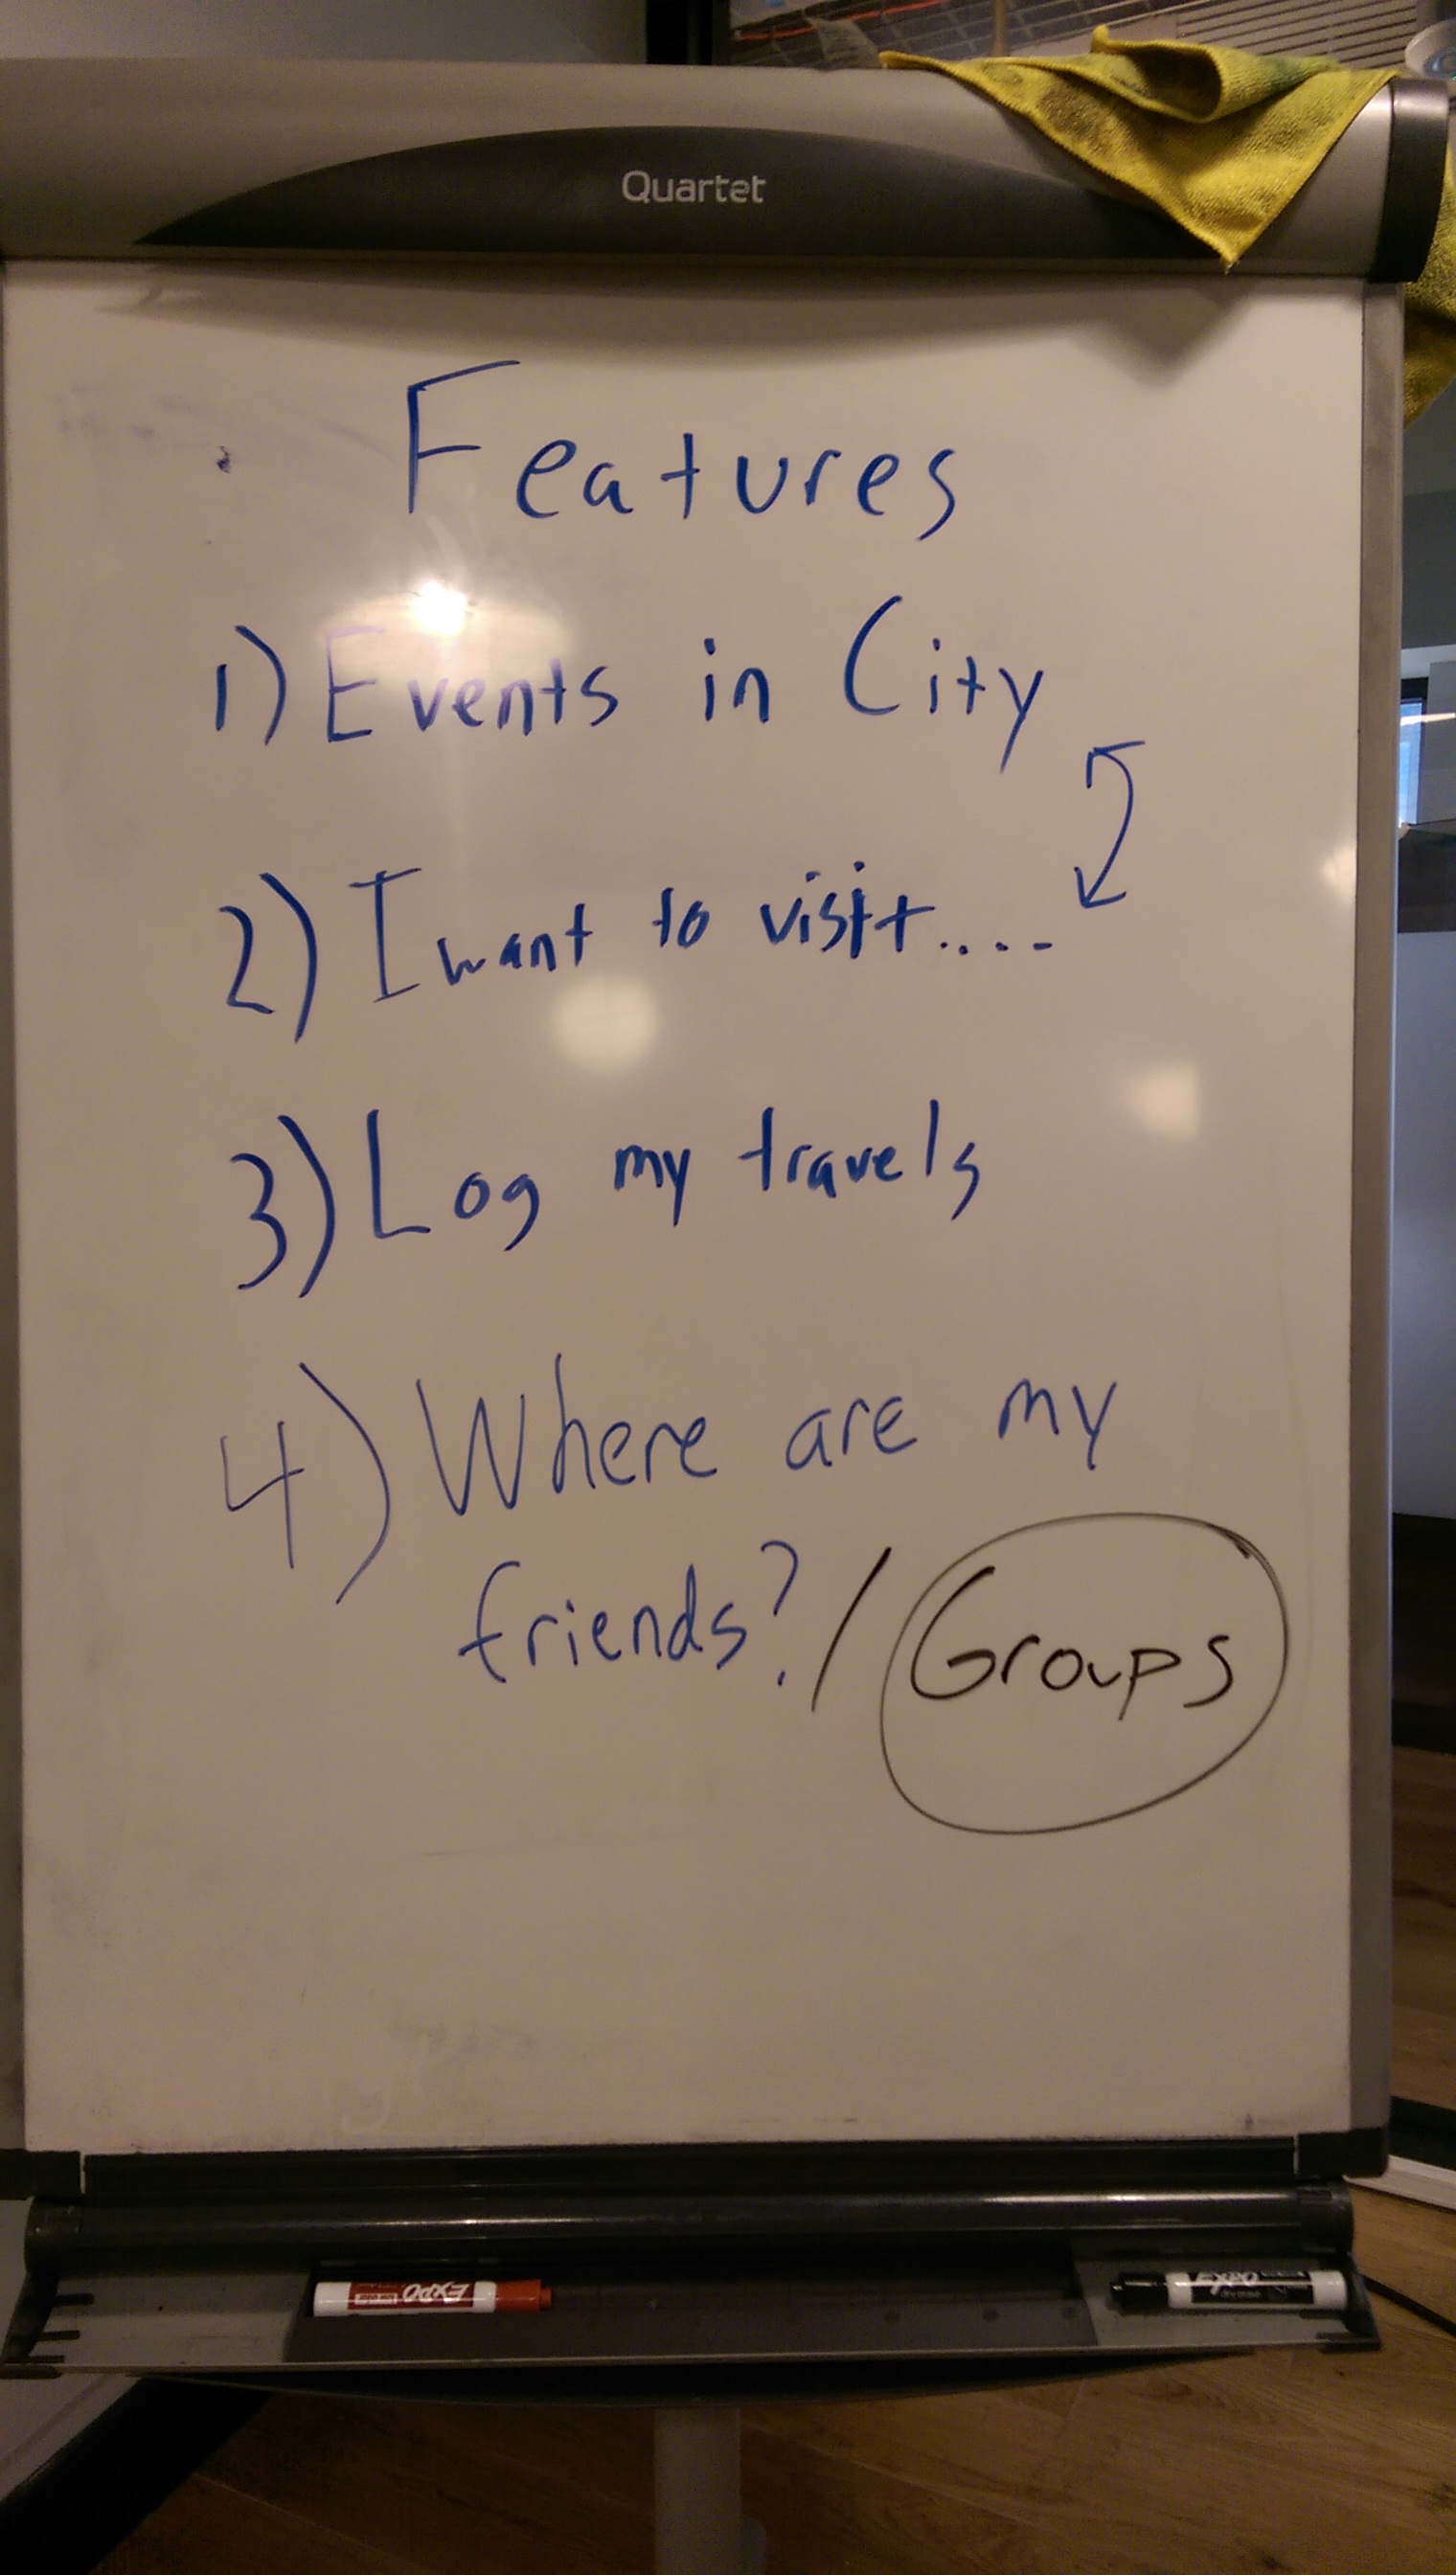 Quartet
Features
1) Events in City
2) I want to visit....
3) Log my travels
4) Where are my
friends? / Groups
EXPO
EXPO